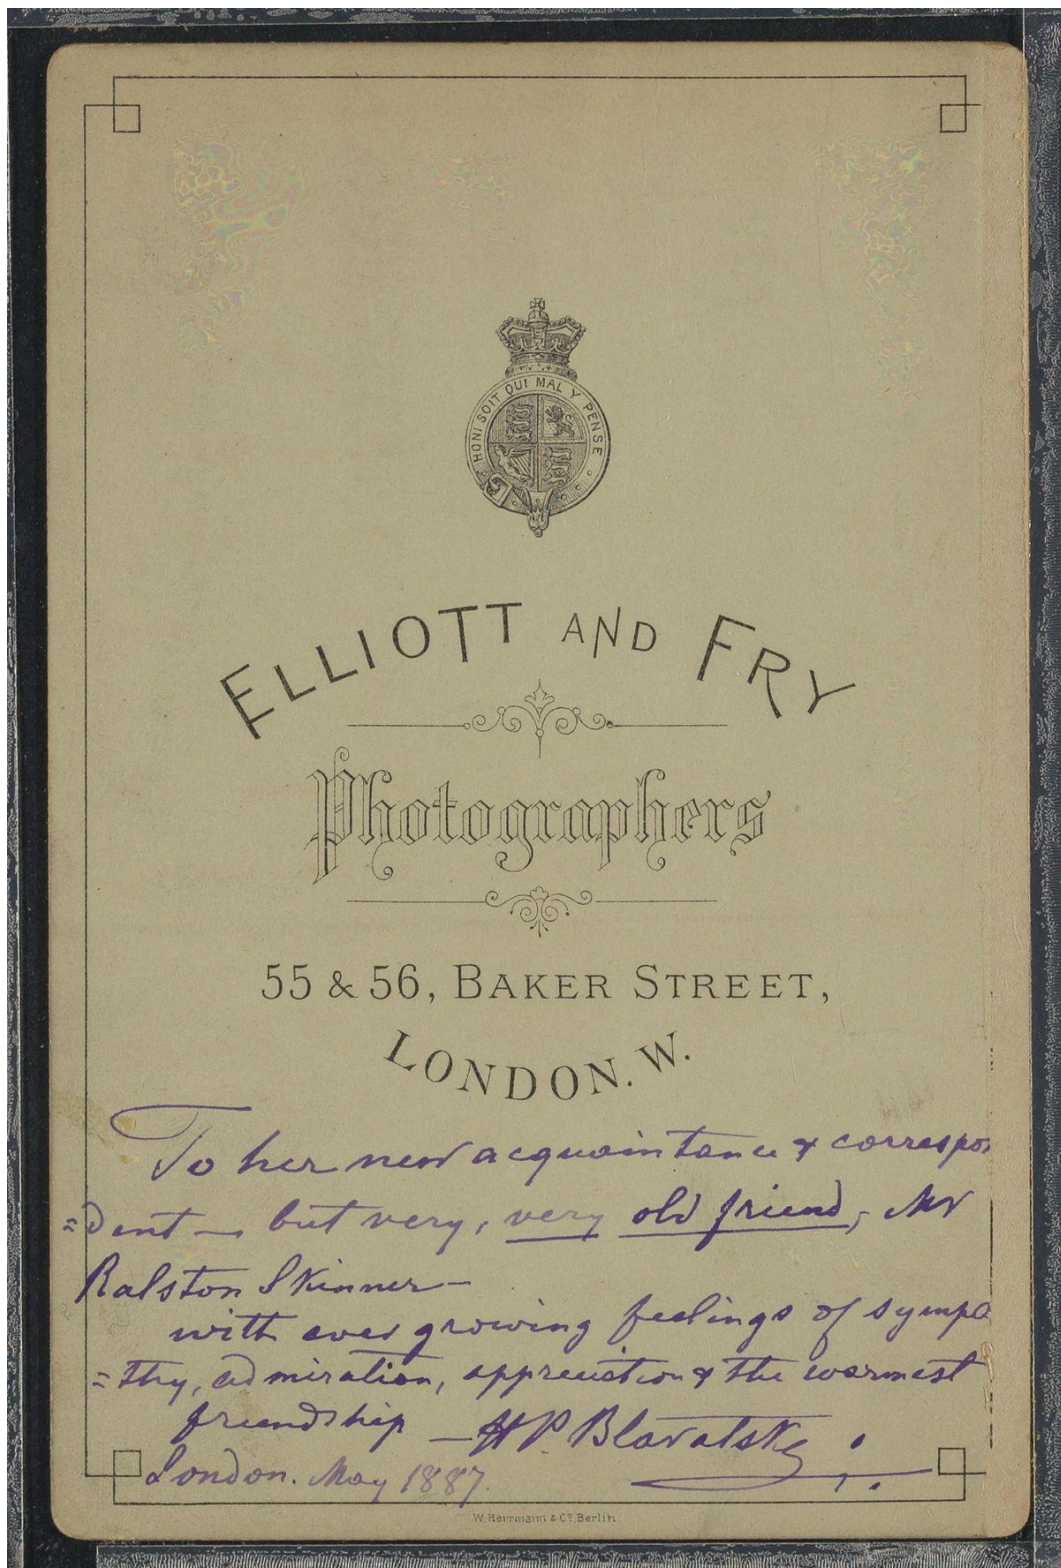 HONI SOIT QUI MAL Y PENSE
ELLIOTT AND FRY
Photographers
55 & 56, BAKER STREET,
LONDON. W.
To her new acquaintance & correspon
=dent — but very, very old friend, Mr
Ralston Skinner —
with ever growing feelings of sympa
=thy, admiration, appreciation & the warmest
friendship — H P Blavatsky
London. May 1887.
W. Herrmann & Co. Berlin